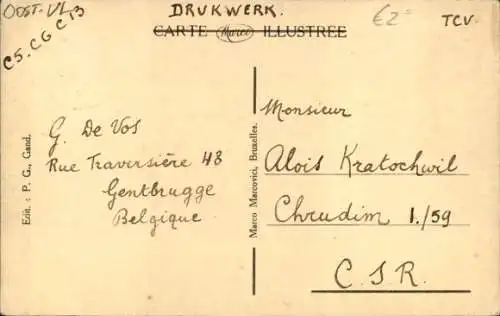 OOST-VL
C5.CG C13
DRUKWERK.
€2=
TCV
CARTE Marco ILLUSTREE
G. De Vos
Rue Traversière 48
Gentbrugge
Belgique
Edit. : P. G., Gand.
Marco Marcovici, Bruxelles.
Monsieur
Alois Kratochwil
Chrudim 1./59
C.S.R.